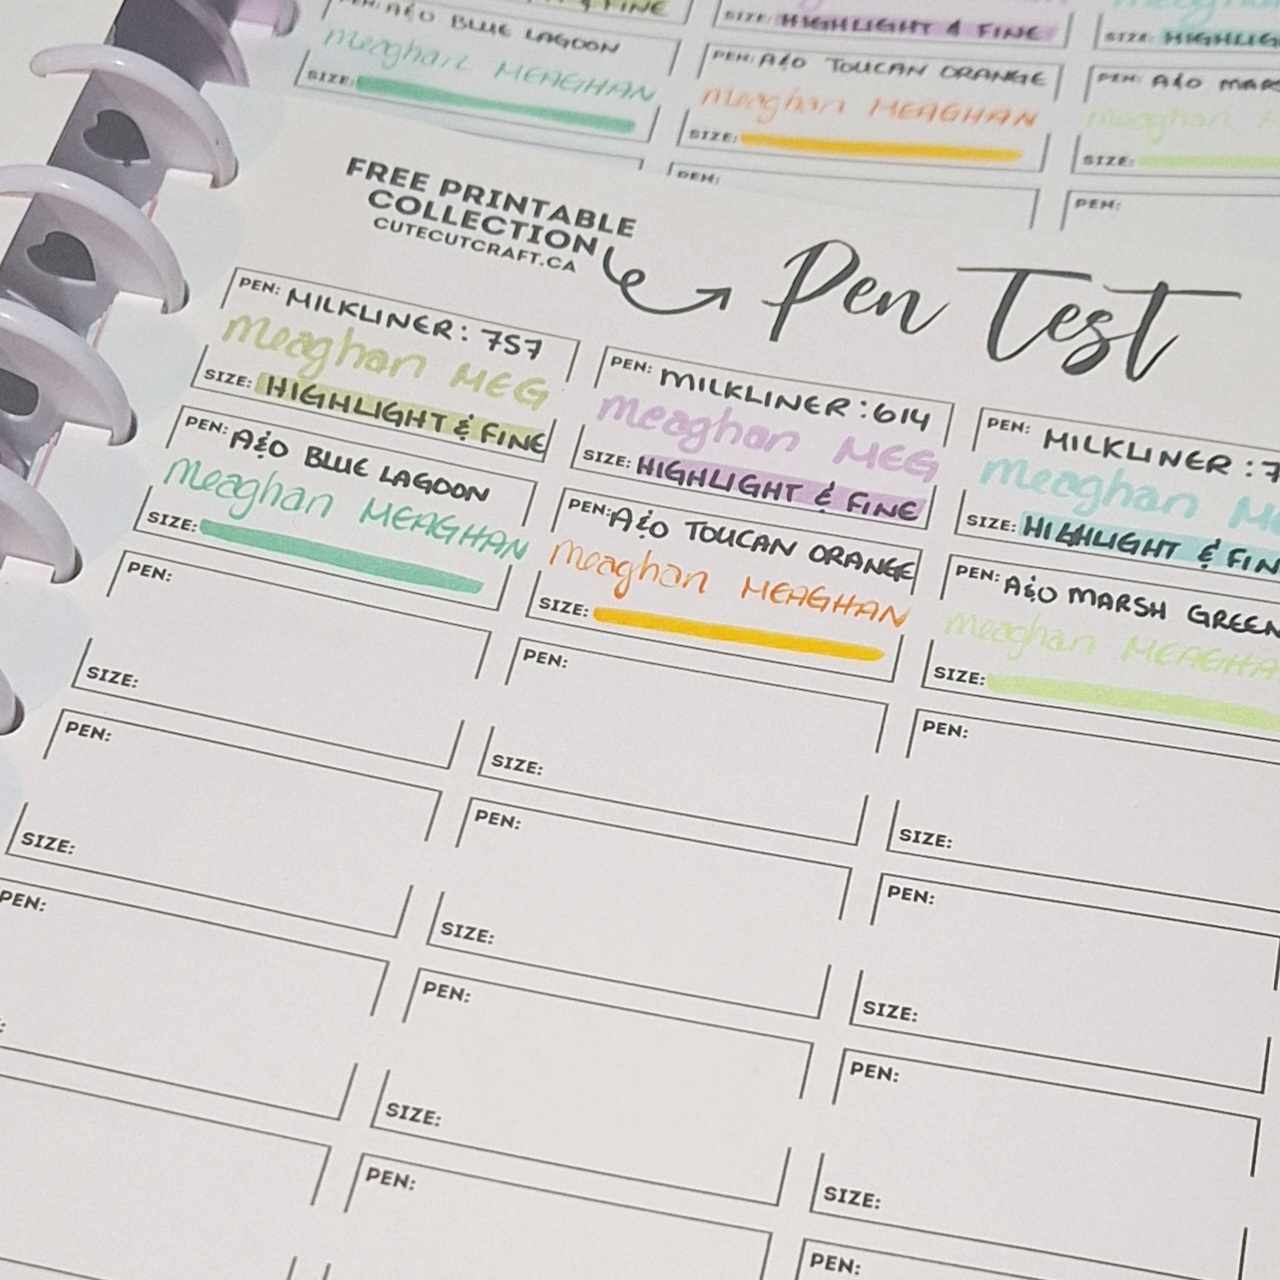 PEN: A&O BLUE LAGOON
meaghan MEAGHAN
SIZE:
& FINE
SIZE: HIGHLIGHT & FINE
PEN: A&O TOUCAN ORANGE
meaghan MEAGHAN
SIZE:
PEN:
SIZE:
PEN: A&O
meaghan
SIZE:
PEN:
FREE PRINTABLE
COLLECTION
CUTECUTCRAFT.CA
Pen Test
PEN: MILKLINER: 757
meaghan MEG
SIZE: HIGHLIGHT & FINE
PEN: MILKLINER: 614
meaghan MEG
SIZE: HIGHLIGHT & FINE
PEN: MILKLINER: 7
meaghan
SIZE: HIGHLIGHT & FIN
PEN: A&O BLUE LAGOON
meaghan MEAGHAN
SIZE:
PEN: A&O TOUCAN ORANGE
meaghan MEAGHAN
SIZE:
PEN: A&O MARSH GREEN
meaghan MEAGHA
SIZE:
PEN:
SIZE:
PEN:
SIZE:
PEN:
SIZE:
PEN:
SIZE:
PEN:
SIZE:
PEN:
SIZE:
PEN:
PEN:
SIZE:
PEN:
SIZE:
PEN:
PEN: